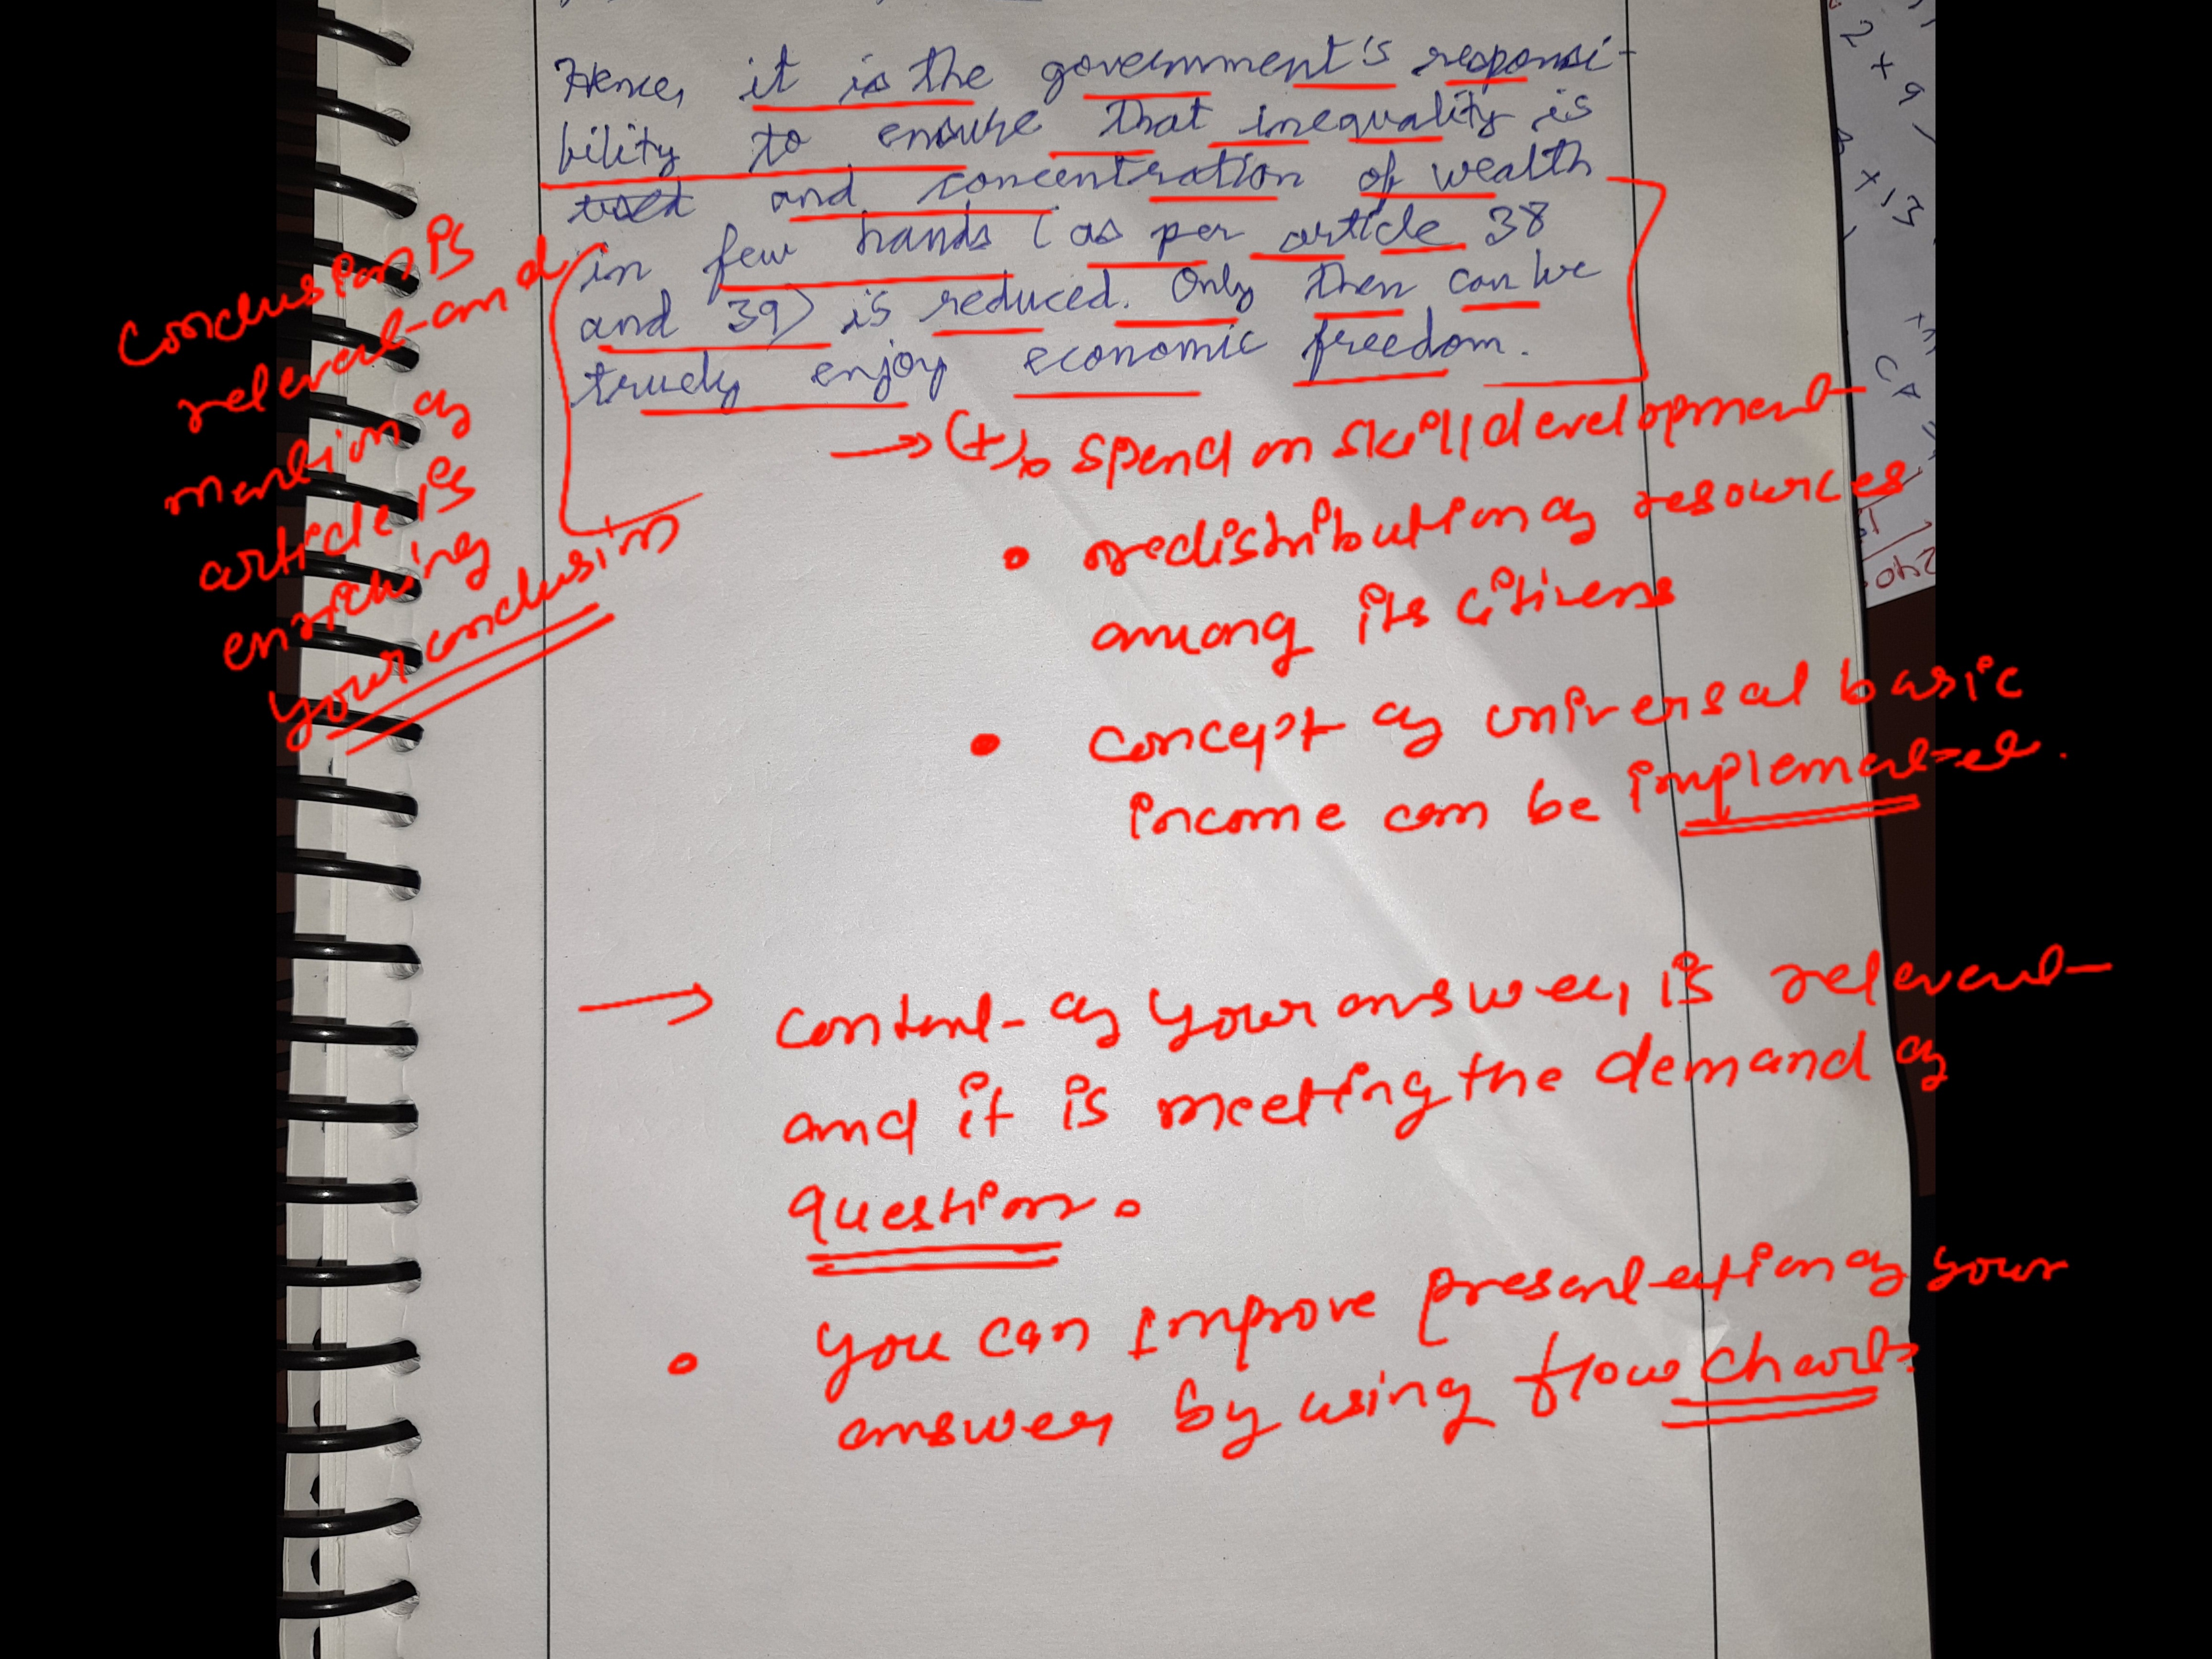 Hence, it is the government's responsi-
bility to ensure that inequality is
and concentration of wealth
in few hands (as per article 38
and 39) is reduced. Only then can we
truely enjoy economic freedom.
Conclusion is
relevent and
mention of
article is
enriching
your conclusion
→ (+) spend on skill development
• redistribution of resources
among its citizens
• concept of universal basic
income can be implemented.
→ content of your answer, is relevent
and it is meeting the demand of
question.
• you can improve presentation of your
answer by using flow charts
2 + 9
+ 13